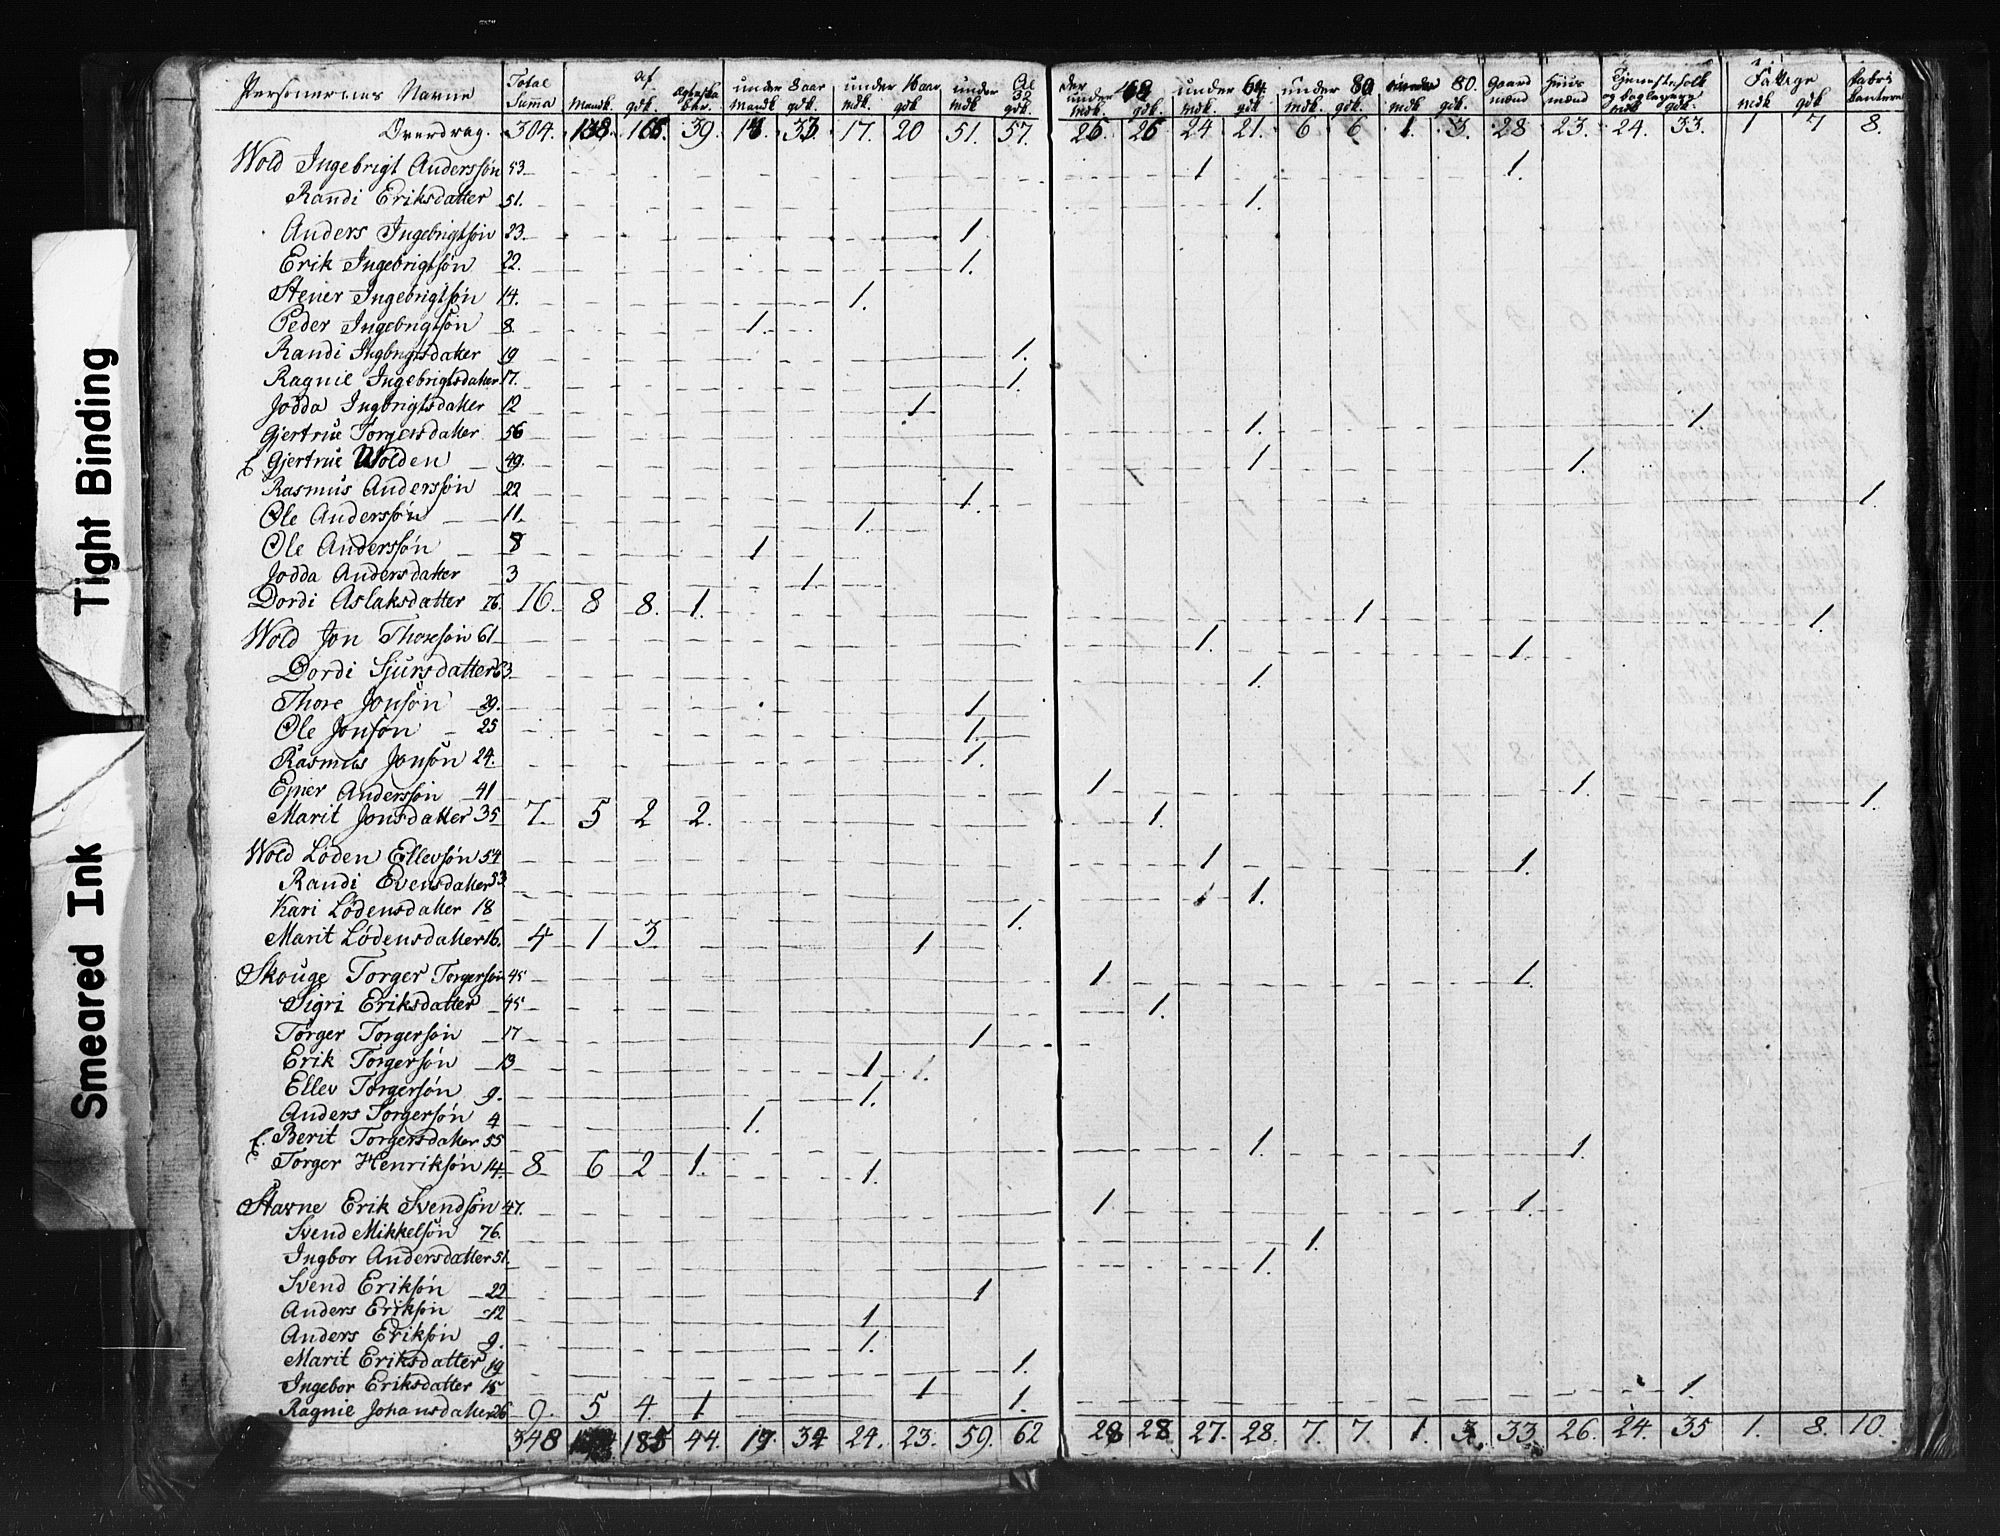 Tight Binding
Smeared Ink
Personernes Navne Total Suma af Mandk. qdk. Ægteska Ehr. under 8 aar mandk qdk. under 16 aar mdk. qdk under 32 mdk qdk. under 48 mdk. qdk. under 64 mdk. qdk. under 80 mdk qdk. 80. mdk qdk. Gaard mænd Huus mænd Tjenestefolk og Logerende mdk qdk. Fattige mdk qdk Fabri kantere
Overdrag. 304. 138. 166. 39. 13. 33 17. 20 51. 57. 26. 26 24 21. 6 6 1. 3. 28 23. 24. 33. 1 7 8.
Wold Ingebrigt Anderssøn 53 1 1.
Randi Eriksdatter 51. 1.
Anders Ingebrigtsøn 23. 1.
Erik Ingebrigtsøn 22. 1.
Stener Ingebrigtsøn 14. 1.
Peder Ingebrigtsøn 8. 1.
Randi Ingbrigtsdatter 19 1.
Ragnil Ingebrigtsdatter 17. 1.
Jodda Ingbrigtsdatter 12 1
Gjertrue Torgersdatter 56 1. 1.
E Gjertrue Wolden 49. 1 1.
Rasmus Anderssøn 22 1. 1.
Ole Anderssøn 11. 1.
Ole Anderssøn 8 1
Jodda Andersdatter 3 1.
Dordi Aslaksdatter 76. 16. 8 8. 1. 1. 1.
Wold Jon Thoresøn 61 1. 1.
Dordi Sjursdatter 63. 1.
Thore Jonsøn 29. 1
Ole Jonsøn 25 1.
Rasmus Jonsøn 24. 1.
Ejner Anderssøn 41 1. 1. 1.
Marit Jonsdatter 35 7. 5 2 2. 1.
Wold Løden Ellevsøn 54 1 1.
Randi Evensdatter 53 1.
Kari Lødensdatter 18 1.
Marit Lødensdatter 16. 4 1 3 1
Skouge Torger Torgersøn 45 1. 1.
Sigri Eriksdatter 45 1.
Torger Torgersøn 17 1
Erik Torgersøn 13 1
Ellev Torgersøn 9. 1.
Anders Torgersøn 4 1.
E Berit Torgersdatter 55 1. 1.
Torger Henriksøn 14. 8 6 2 1. 1.
Stavne Erik Svendsøn 47. 1. 1.
Svend Mikkelsøn 76. 1.
Ingbor Andersdatter 51. 1.
Svend Eriksøn 22 1
Anders Eriksøn 12 1
Anders Eriksøn 9. 1.
Marit Eriksdatter 19 1.
Ingebor Eriksdatter 15 1
Ragnil Johansdatter 26 9. 5 4. 1 1. 1.
348 185 44. 17. 34 24. 23. 59. 62 28 28. 27. 28. 7. 7. 1. 3. 33. 26. 24. 35 1. 8. 10.